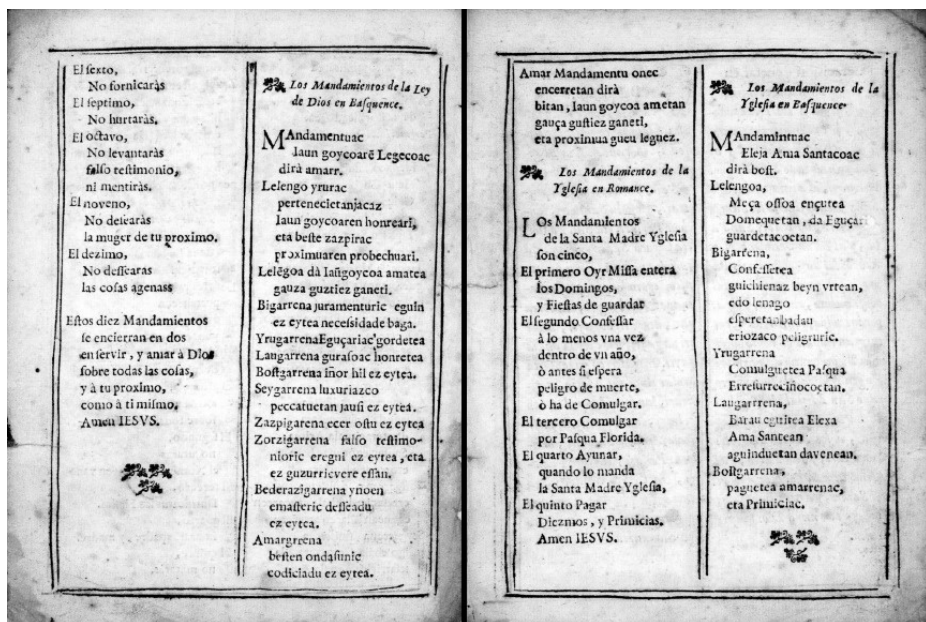 El sexto,
No fornicaràs
El septimo,
No hurtaràs.
El octavo,
No levantaràs
falso testimonio,
ni mentiràs.
El noveno,
No desearàs
la muger de tu proximo.
El dezimo,
No dessearas
las cosas agenass
Estos diez Mandamientos
se encierran en dos
en servir, y amar à Dios
sobre todas las cosas,
y à tu proximo,
como à ti mismo,
Amen IESVS.
Los Mandamientos de la Ley
de Dios en Basquence.
MAndamentuac
Iaun goycoarē Legecoac
dirà amarr.
Lelengo yrurac
pertenecietanjacaz
Iaun goycoaren honreari,
eta beste zazpirac
proximuaren probechuari.
Lelēgoa dà Iaūgoycoa amatea
gauza guztiez ganeti.
Bigarrena juramenturic eguin
ez eytea necessidade baga.
YrugarrenaEguçariac gordetea
Laugarrena gurasoac honretea
Bostgarrena iñor hil ez eytea.
Seygarrena luxuriazco
peccatuetan jausi ez eytea.
Zazpigarena ecer ostu ez eytea
Zorzigarrena falso testimo-
nioric eregni ez eytea, eta
ez guzurrievere essan.
Bederazigarrena yñoen
emasteric desseadu
ez eytea.
Amargrrena
besten ondasunic
codiciadu ez eytea.
Amar Mandamentu onec
encerretan dirà
bitan, Iaun goycoa ametan
gauça gustiez ganeti,
eta proximua gueu leguez.
Los Mandamientos de la
Yglesia en Romance.
LOs Mandamientos
de la Santa Madre Yglesia
son cinco,
El primero Oyr Missa entera
los Domingos,
y Fiestas de guardar
El segundo Confessar
à lo menos vna vez
dentro de vn año,
ò antes si espera
peligro de muerte,
ò ha de Comulgar.
El tercero Comulgar
por Pasqua Florida.
El quarto Ayunar,
quando lo manda
la Santa Madre Yglesia,
El quinto Pagar
Diezmos, y Primicias.
Amen IESVS.
Los Mandamientos de la
Yglesia en Basquence.
MAndamintuac
Eleja Ama Santacoac
dirà bost.
Lelengoa,
Meça ossoa ençutea
Domequetan, da Eguçari
guardetacoetan.
Bigarrena,
Confessetea
guichienaz beyn vrtean,
edo lenago
esperetanbadau
eriozaco peligruric.
Yrugarrena
Comulguetea Pasqua
Erresurreciñocoetan.
Laugarrrena,
Barau eguitea Elexa
Ama Santean
aguinduetan davenean.
Bostgarrena,
paguetea amarrenac,
eta Primiciac.